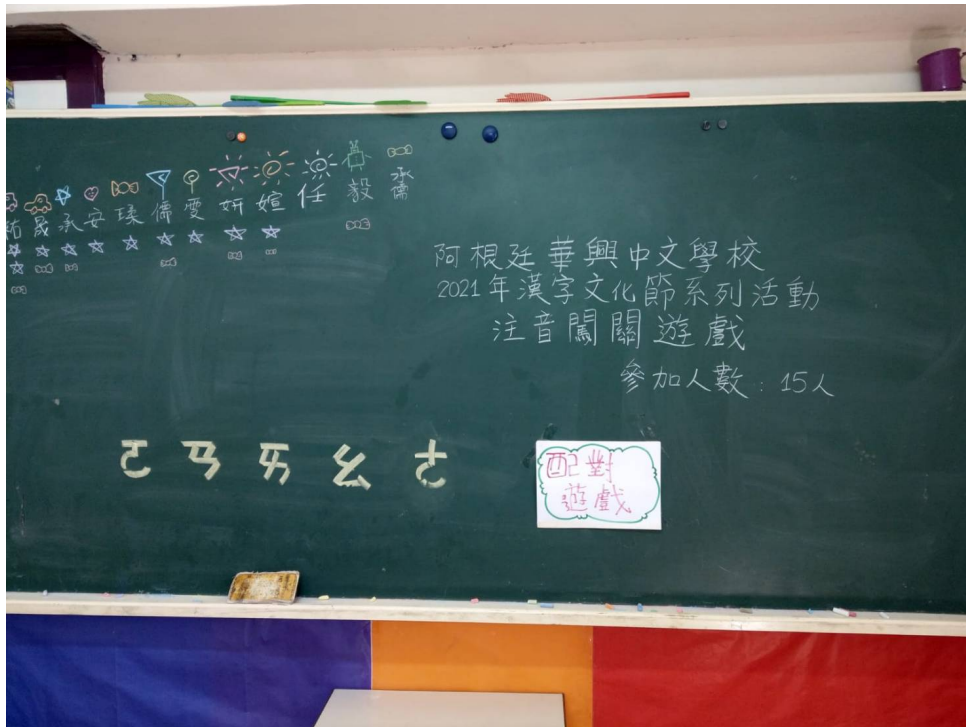 晟 承 安 瑈 儒 雯 妍 媗 任 毅 承儒
阿根廷華興中文學校
2021年漢字文化節系列活動
注音闖關遊戲
參加人數：15人
ㄛ ㄢ ㄞ ㄠ ㄜ
配對
遊戲